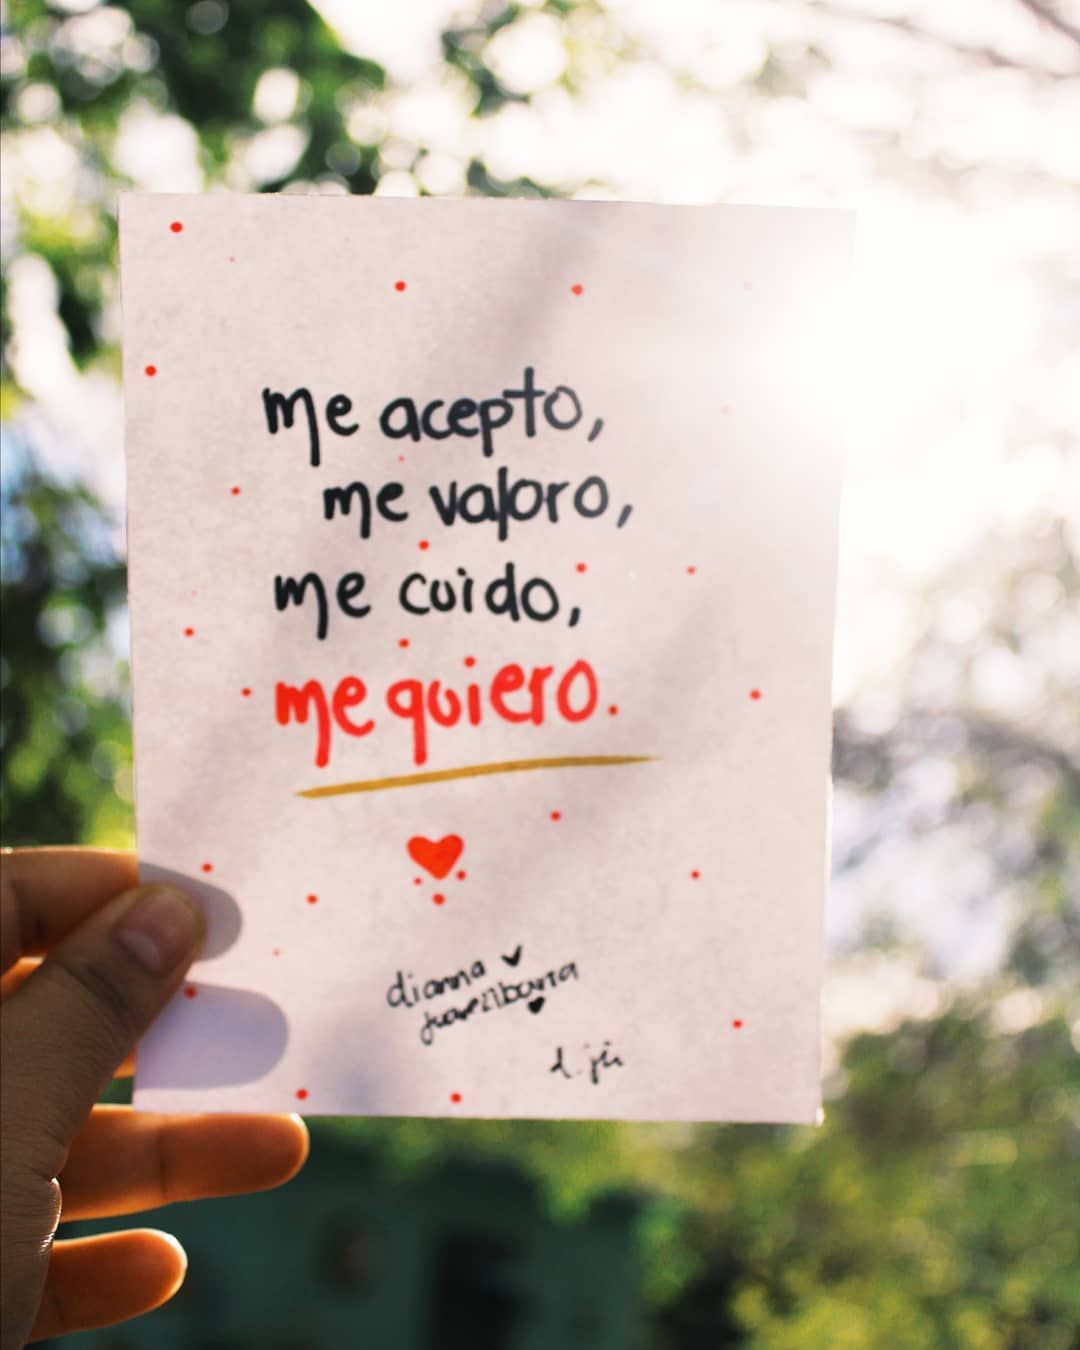 me acepto,
me valoro,
me cuido,
me quiero.
dianna
juarezIbarra
d. ji